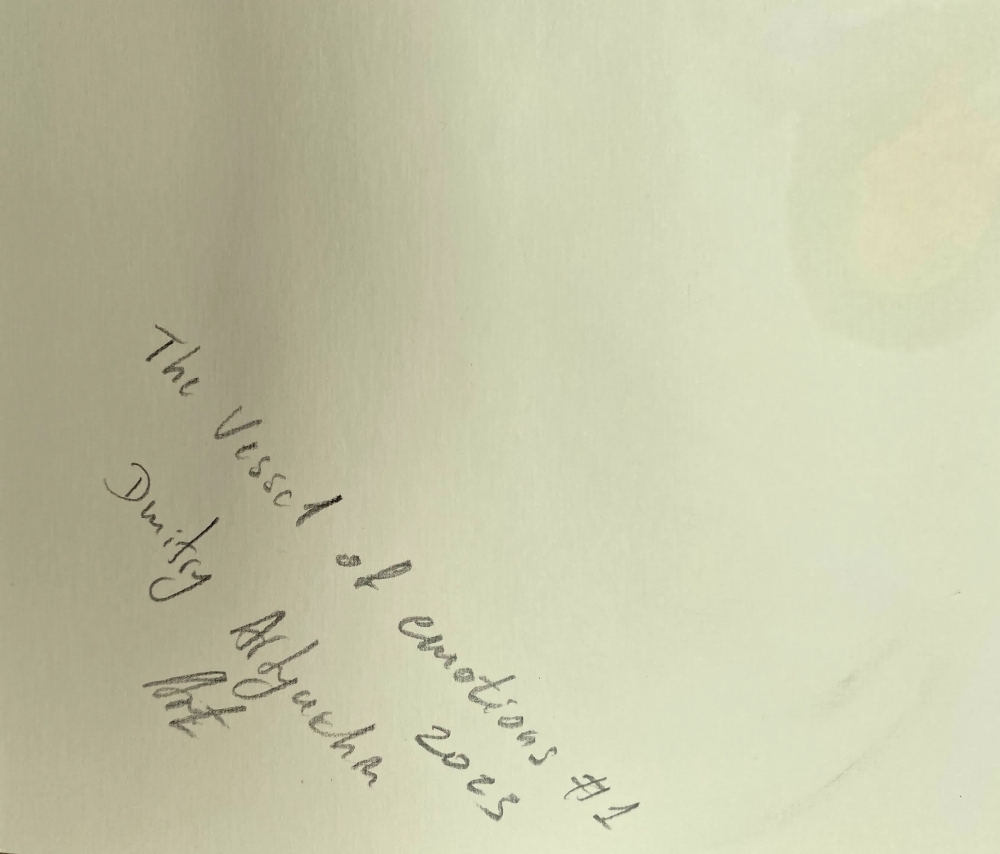 The Vessel of emotions #1
Dmitry Artyukhn 2023
Art